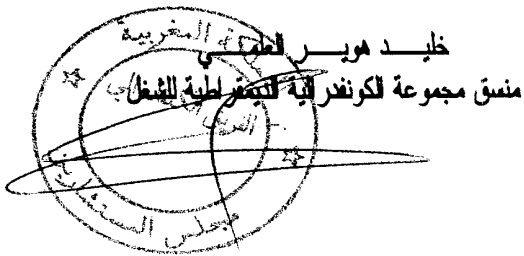 خليد هوير العلمي
منسق مجموعة الكونفدرالية الديمقراطية للشغل
المغربية
مجلس المستشارين